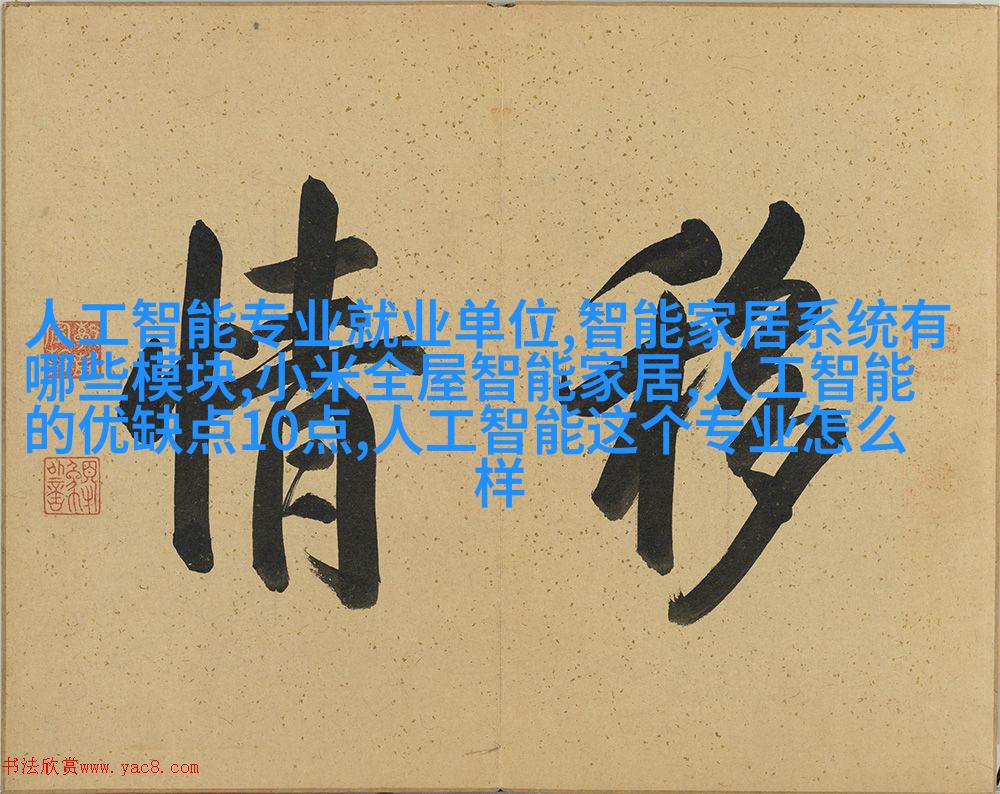 移情
人工智能专业就业单位,智能家居系统有
哪些模块,小米全屋智能家居,人工智能
的优缺点10点,人工智能这个专业怎么
样
书法欣赏www.yac8.com